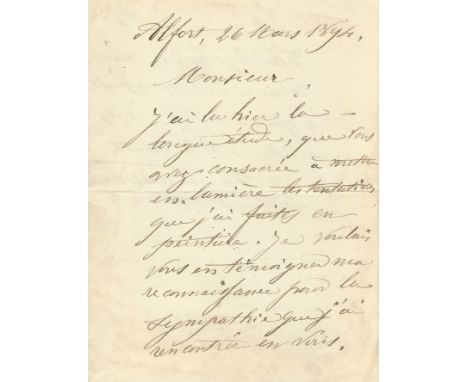 Alfort, 26 Mars 1894.
Monsieur
J'ai lu hier la
longue étude, que vous
avez consacrée à mettre
en lumière les tentatives
que j'ai faites en
peinture. Je voulais
vous en témoigner ma
reconnaissance pour la
sympathie que j'ai
rencontrée en vous.